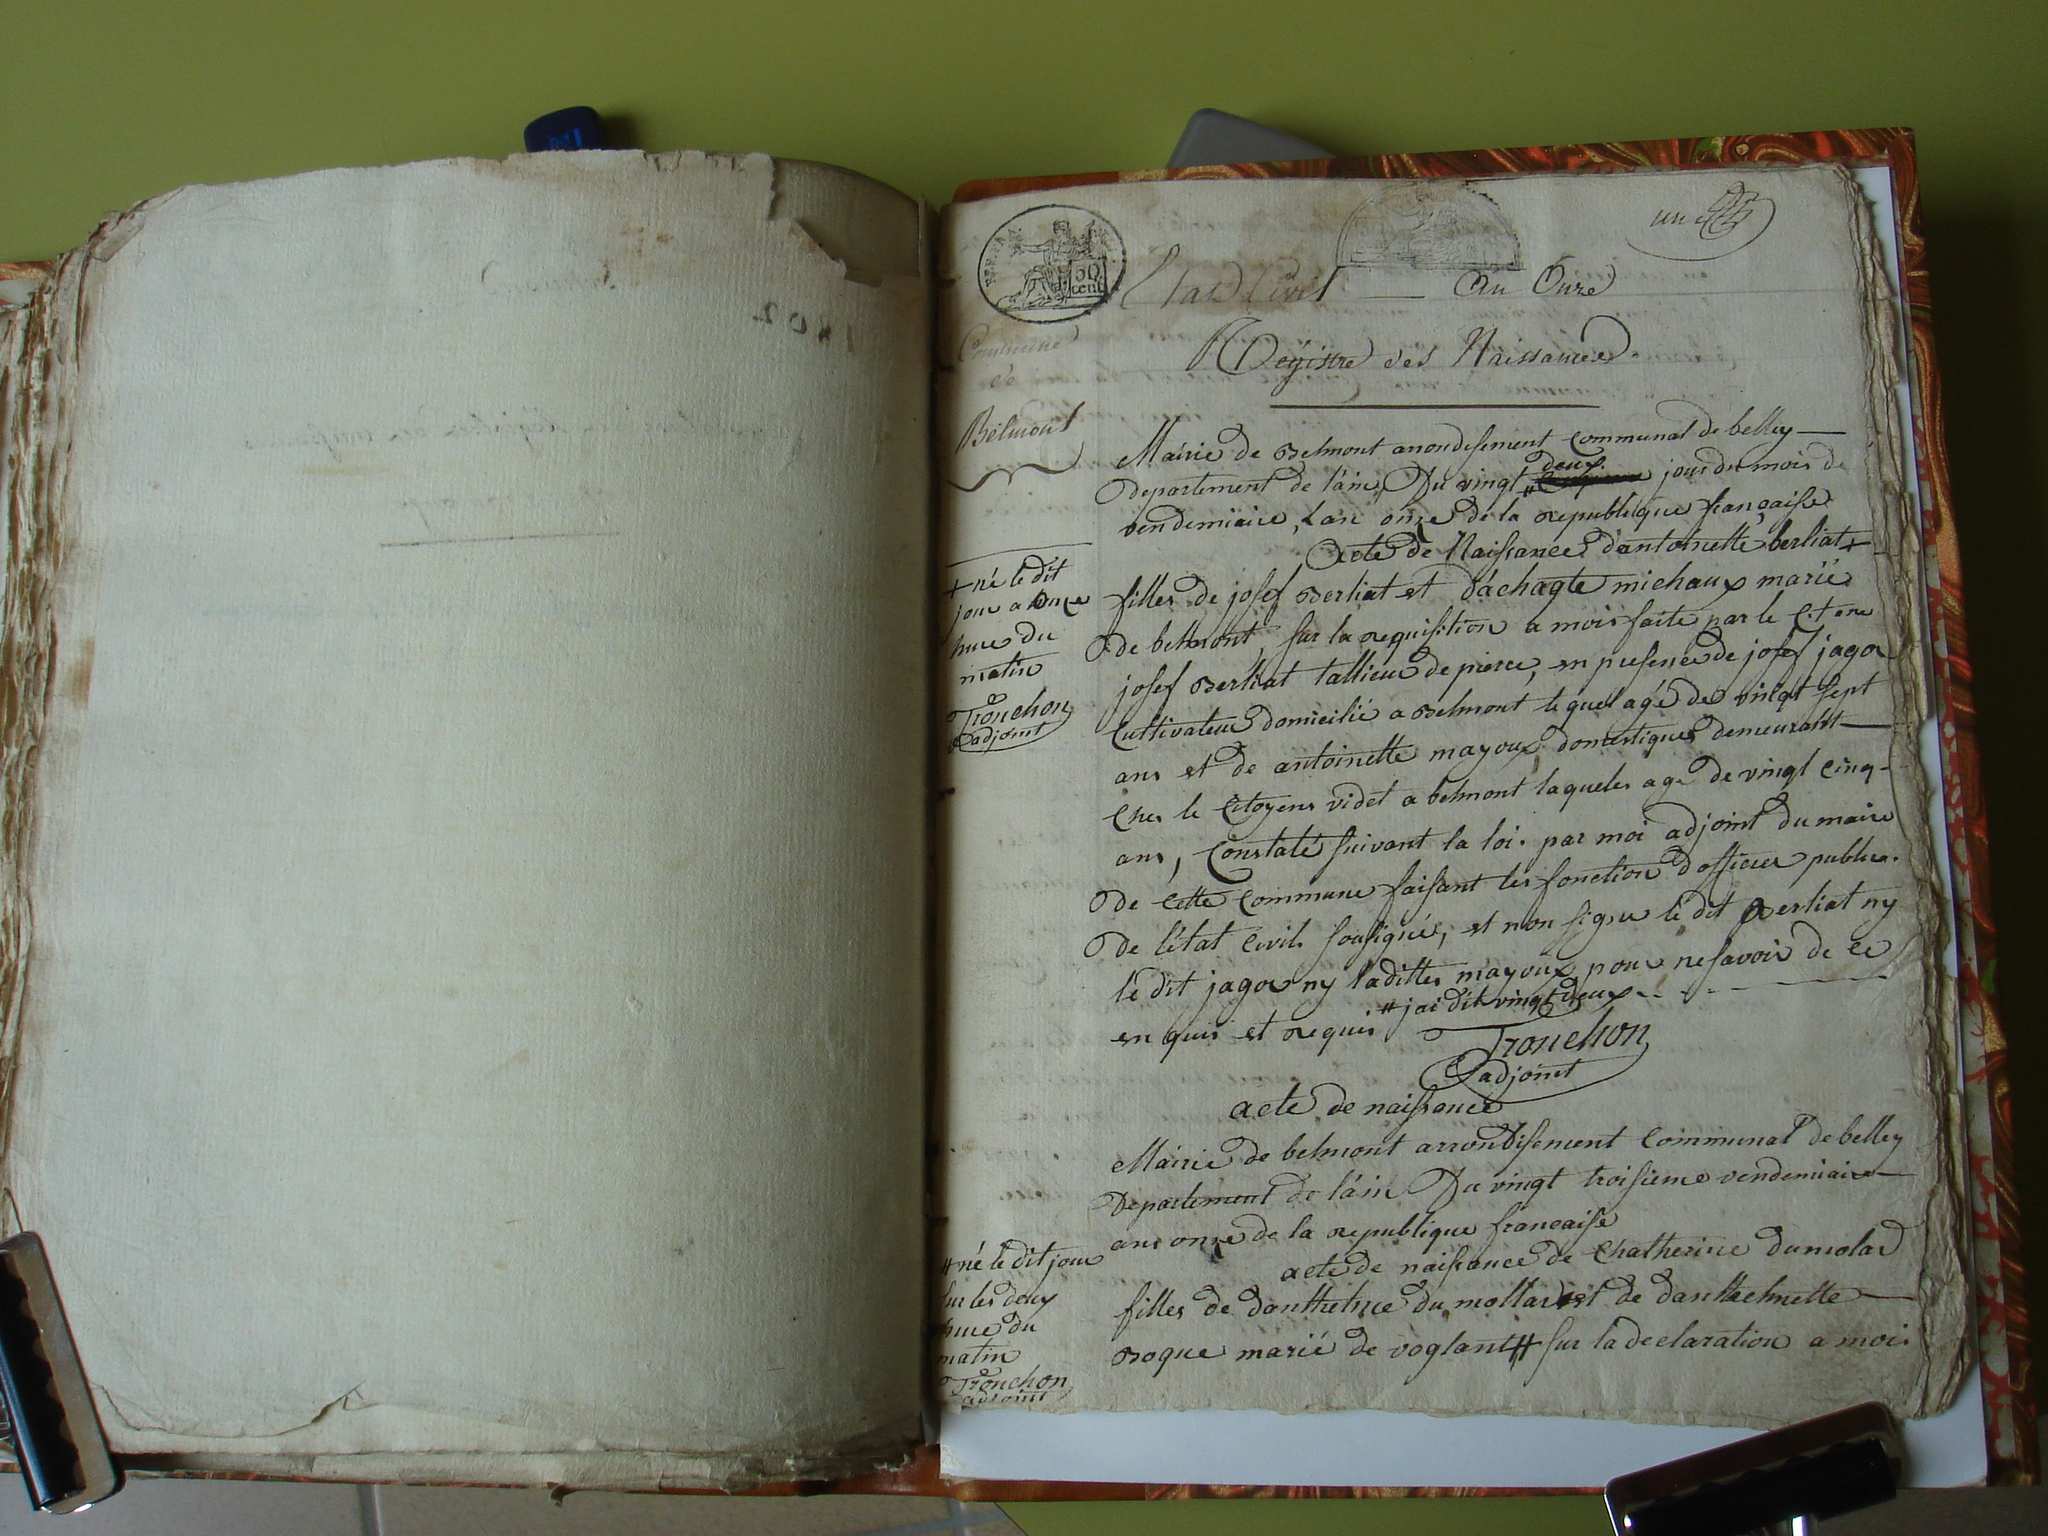 1802
RÉP. FRA.
50
cent
un
Etat Civil — An Onze
Commune
de
Belmont
Registre des Naissances.
Mairie de Belmont arrondisement Communal de belley
departement de l'ain, Du vingt # deux jour du mois de
vendemiaire, L'an onze de la republique française
Acte de Naissance d'antoinette berliat +
filles de josef Berliat et d'achagte michaux marié
de belmont, sur la requisition a mois faite par le Citoyen
josef Berliat tallieur de pierce, en presence de josef jagou
Cultivateur domicilié a Belmont le quel agé de vingt sept
ans et de antoinette mayoux, domestiques demeurant
Ches le Citoyens videt a belmont laqueles age de vingt cinq
ans, Constaté suivant la loi. par moi adjoint du maire
de cette commune faisant les fonction d'officier publica.
de l'état civil sousigné, et non signe le dit Berliat ny
le dit jagou ny laditte mayoux pour ne savoir de ce
en quis et requis # jai dit vingt deux
Tronchon
adjoint
+ né le dit
jour a onze
hure du
matin
Tronchon
adjoint
acte de naissance
Mairie de belmont arrondisement Communal de belley
Departement de l'ain Du vingt troisieme vendemiaire
ans onze de la republique francaise
acte de naissance de Chatherine dumolard
filles de danthelme du mollard et de danthelmette
Roque marié de voglant # sur la declaration a moi
# né le dit jour
sur les deux
hure du
matin
Tronchon
adjoint